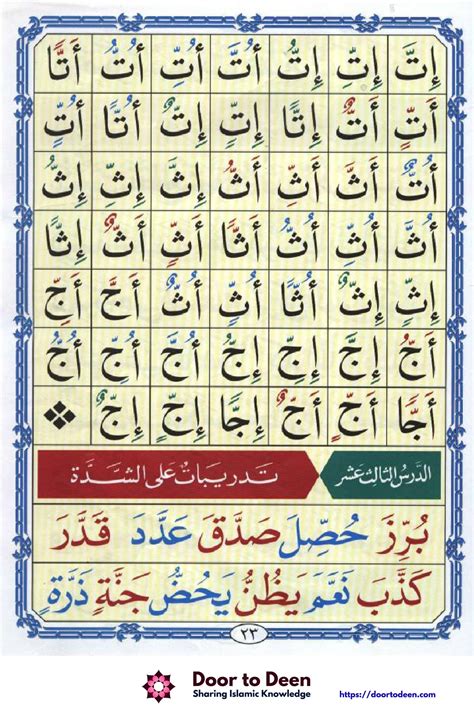 إِتَّ إِتِّ إِتُّ أُتَّ أُتِّ أُتُّ أَتًّا
أَتٍّ أَتٌّ إِتًّا إِتٍّ إِتٌّ أُتًّا أُتٍّ
أُتٌّ أَثَّ أَثِّ أَثُّ إِثَّ إِثِّ إِثُّ
أُثَّ أُثِّ أُثُّ أَثًّا أَثٍّ أَثٌّ إِثًّا
إِثٍّ إِثٌّ أُثًّا أُثٍّ أُثٌّ أَجَّ أَجِّ
أَجُّ إِجَّ إِجِّ إِجُّ أُجَّ أُجِّ أُجُّ
أَجًّا أَجٍّ أَجٌّ إِجًّا إِجٍّ إِجٌّ
الدَّرسُ الثالث عَشَر تَدريبَاتٌ عَلى الشَّدَّة
بُرِّزَ حُصِّلَ صَدَّقَ عَدَّدَ قَدَّرَ
كَذَّبَ نَعَّمَ يَظُنُّ يَحُضُّ جَنَّةٍ ذَرَّةٍ
٢٣
Door to Deen
Sharing Islamic Knowledge
https://doortodeen.com